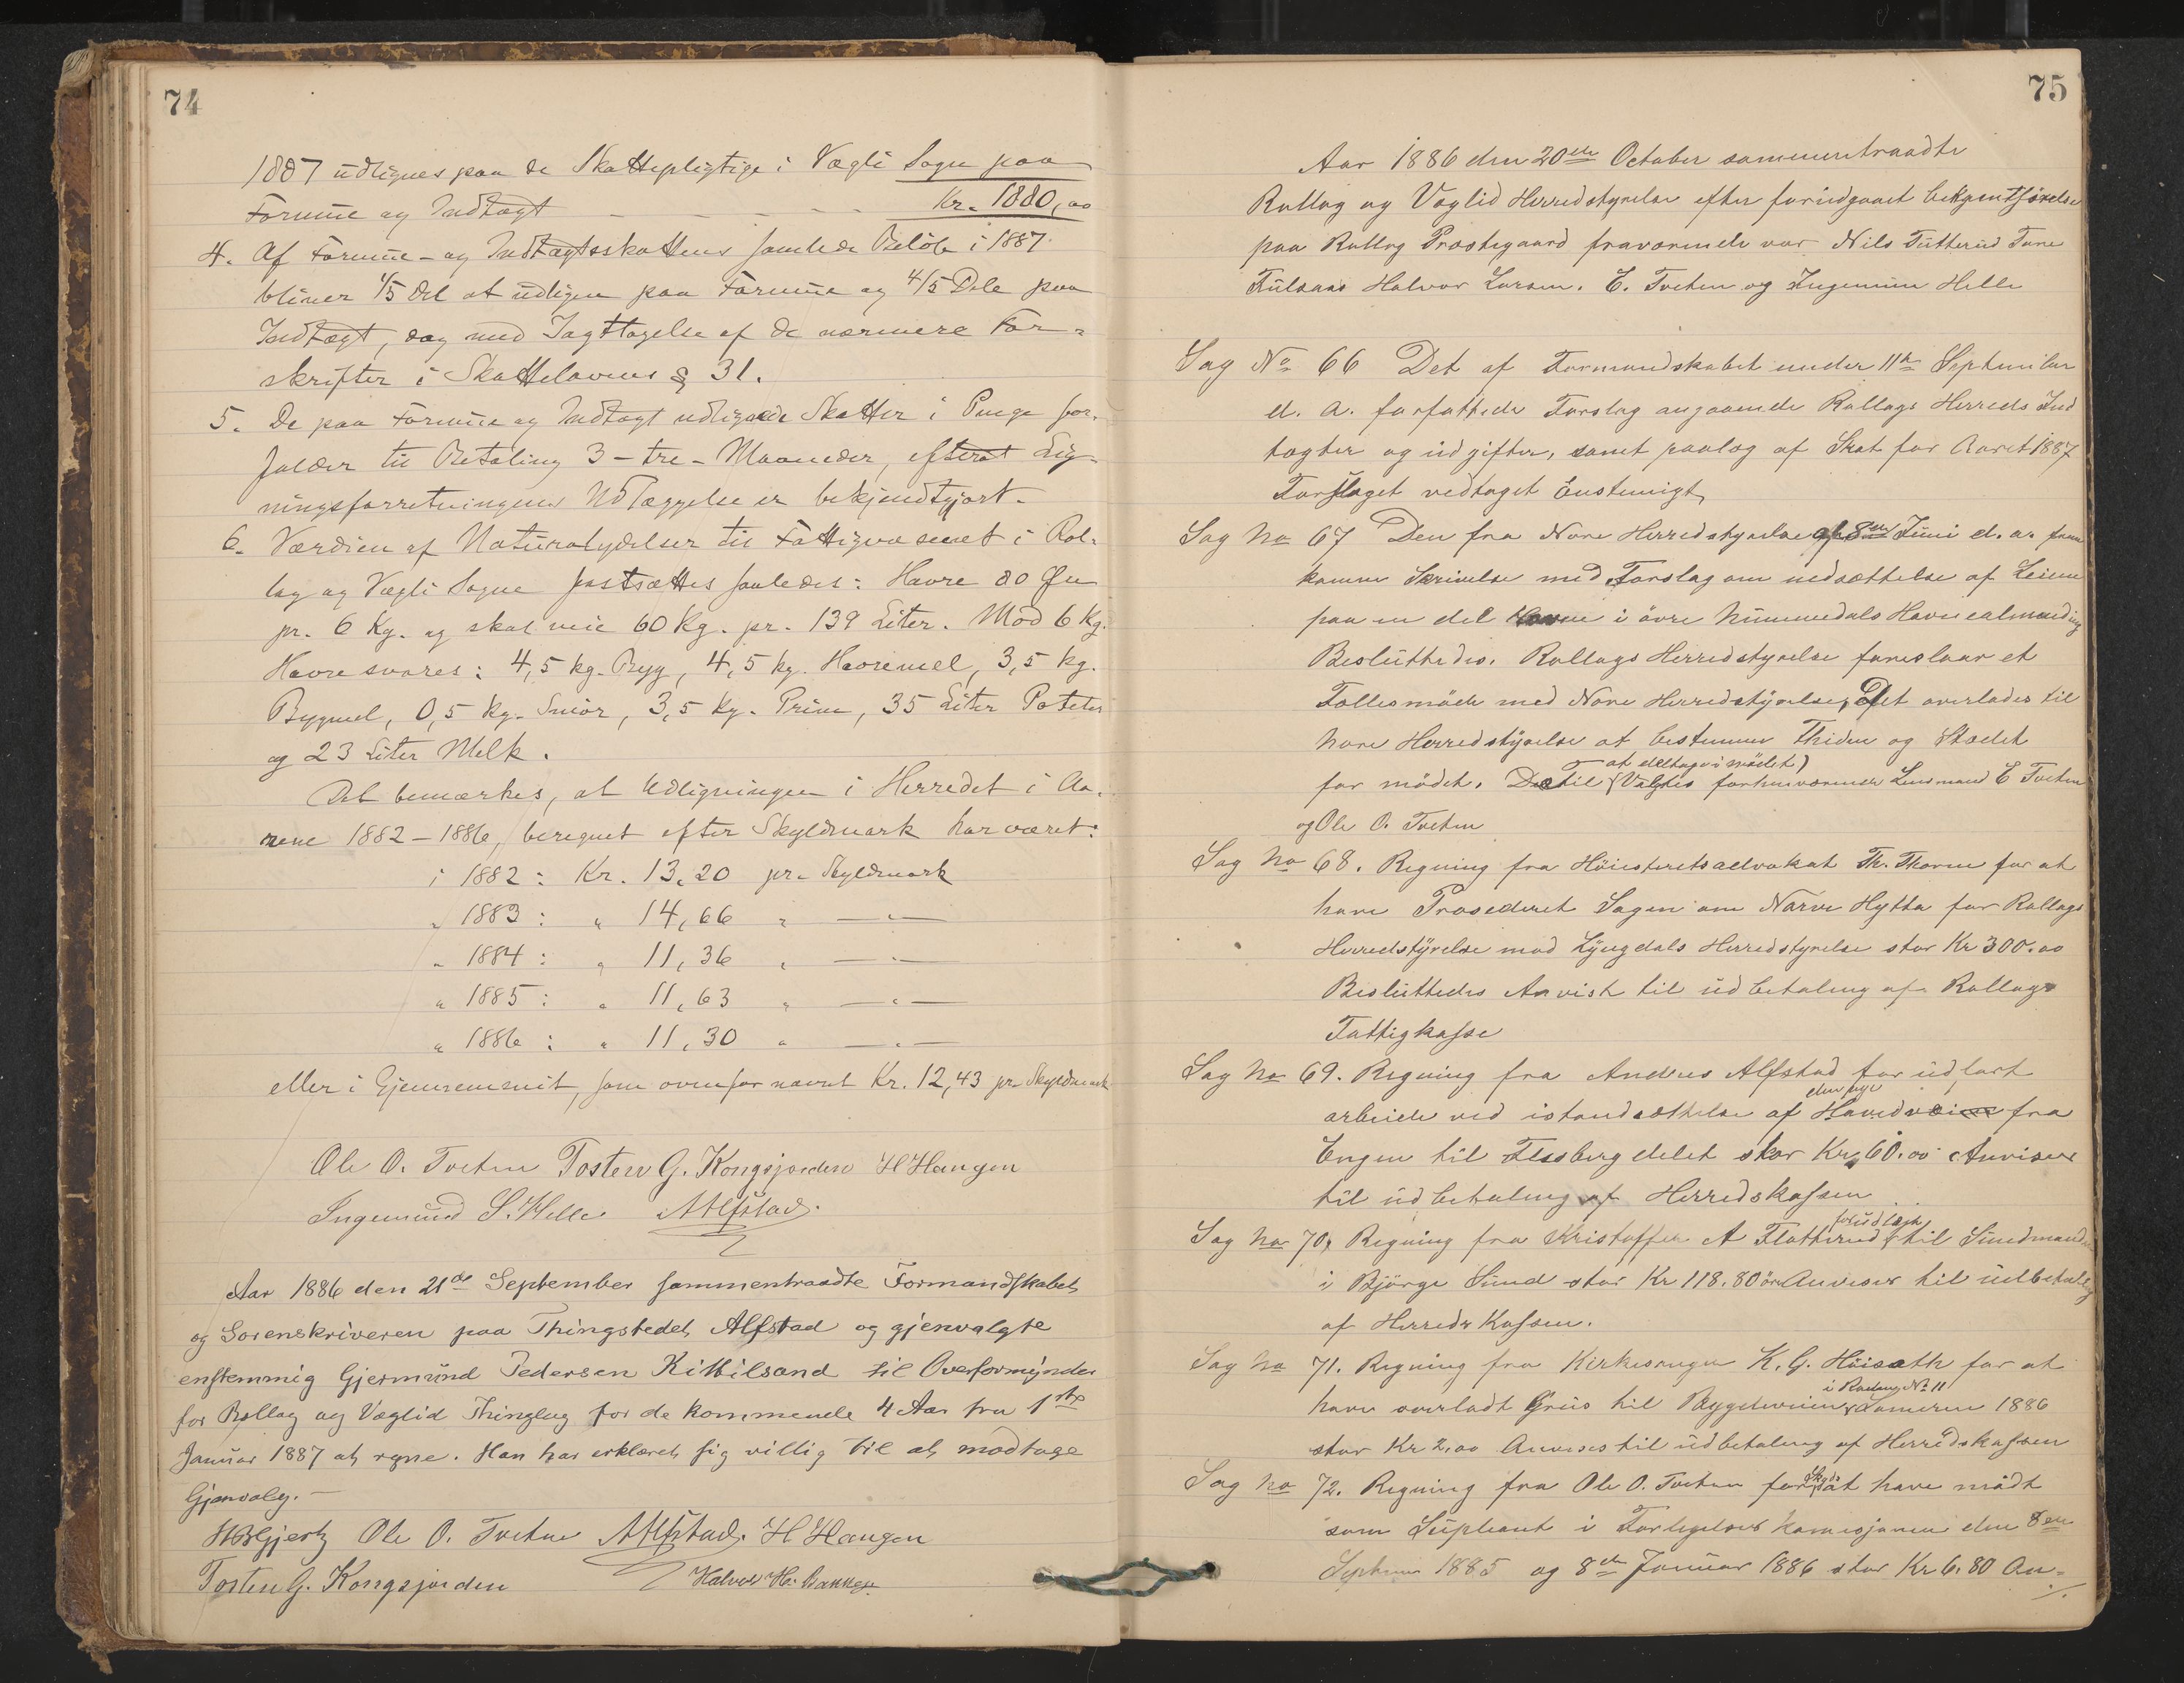 74
1887 udlignes paa de Skattepligtige i Vægli Sogn paa
Formue og Indtægt - - - - - Kr. 1880,00
4. Af Formue- og Indtægtsskattens samlede Beløb i 1887
bliver 1/5 Del at udligne paa Formue og 4/5 Dele paa
Indtægt, dog med Iagttagelse af de nærmere For-
skrifter i Skattelovens § 31.
5. De paa Formue og Indtægt udlignede Skatter i Penge for-
falder til Betaling 3 - tre - Maaneder, efterat Lig-
ningsforretningens Udlæggelse er bekjendtgjort.
6. Værdien af Naturalydelser til Fattigvæsenet i Rol-
lag og Vægli Sogne fastsættes saaledes: Havre 80 Øre
pr. 6 Kg. og skal veie 60 Kg. pr. 139 Liter. Mod 6 Kg.
Havre svares: 4,5 kg. Byg, 4,5 kg. Havremel, 3,5 kg.
Bygmel, 0,5 kg. Smør, 3,5 kg. Prim, 35 Liter Poteter
og 23 Liter Melk.
Det bemærkes, at Udligningen i Herredet i Aa-
rene 1882-1886, beregnet efter Skyldmark har været:
i 1882: Kr. 13,20 pr. Skyldmark
" 1883: " 14,66 " — " —
" 1884: " 11,36 " — " —
" 1885: " 11,63 " — " —
" 1886: " 11,30 " — " —
eller i Gjennemsnit, som ovenfor nævnt Kr. 12,43 pr. Skyldmark
Ole O. Tveten Tosten G. Kongsjorden H Haugen
Ingemund S. Helle AAlfstad.
Aar 1886 den 21de September sammentraadte Formandskabet
og Sorenskriveren paa Thingstedet Alfstad og gjenvalgte
enstemmig Gjermund Pedersen Kittilsand til Overformynder
for Rollag og Væglid Thinglag for de kommende 4 Aar fra 1ste
Januar 1887 at regne. Han har erklæret sig villig til at modtage
Gjenvalg. -
Hjertz Ole O. Tveten AAlfstad. H Haugen
Tosten G. Kongsjorden Halvor H. Bakken
75
Aar 1886 den 20de October sammentraadte
Rollag og Væglid Herredstyrelse efter foriudgaaet bekjentgjørelse
paa Rollag Præstegaard fraværende var Nils Tutterud Tore
Halvor Larsen. E. Tveten og Ingemun Helle
Sag No 66 Det af Formandskabet under 11te September
d. A. forfattede Forslag angaaende Rollags Herreds Ind
tægter og udgifter, samt paalæg af Skat for Aaret 1887
Forslaget vedtaget Enstemigt
Sag No 67 Den fra Nore Herredstyrelse af 8de Juni d. a. frem
komne Skrivelse med Forslag om nedsættelse af Leien
paa en del Havne i øvre Nummedals Havnealmending
Besluttedes. Rollags Herredstyrelse foreslaar et
Fællesmøde med Nore Herredstyrelse, Det overlades til
Nore Herredstyrelse at bestemme Thiden og Stædet
at deltage i mødet)
for mødet. Dertil (Valgtes forhenværende Lensmand E Tveten
og Ole O. Tveten
Sag No 68. Regning fra Høiesteretsadvokat Th. Thorne for at
have Prosederet Sagen om Narve Hytta for Rollags
Herredstyrelse mod Lyngdals Herredstyrelse stor Kr 300.00
Besluttedes Anvist til udbetaling af Rollags
Fattigkasse
Sag No 69. Regning fra Andres Alfstad for udført
den nye
arbeide ved istandsættelse af Hovedveien fra
Engen til Flesberg delet stor Kr. 60.00 Anvises
til udbetaling af Herredskassen
forudlagt
Sag No 70, Regning fra Kristoffer A Flatterud til Sundmanden
i Bjørge Sund stor Kr 118.80 øre Anvises til udbetaling
af Herreds Kassen.
Sag No 71. Regning fra Kirkesanger K. G. Høisæth for at
i Rodung No 11
have overladt Grus til Bygdeveien 1886
stor Kr 2.00 Anvises til udbetaling af Herredskassen
Sag No 72. Regning fra Ole O. Tveten for at have mødt
som Supleant i den 8de
Septem 1885 og 8de Januar 1886 stor Kr 6.80 An-